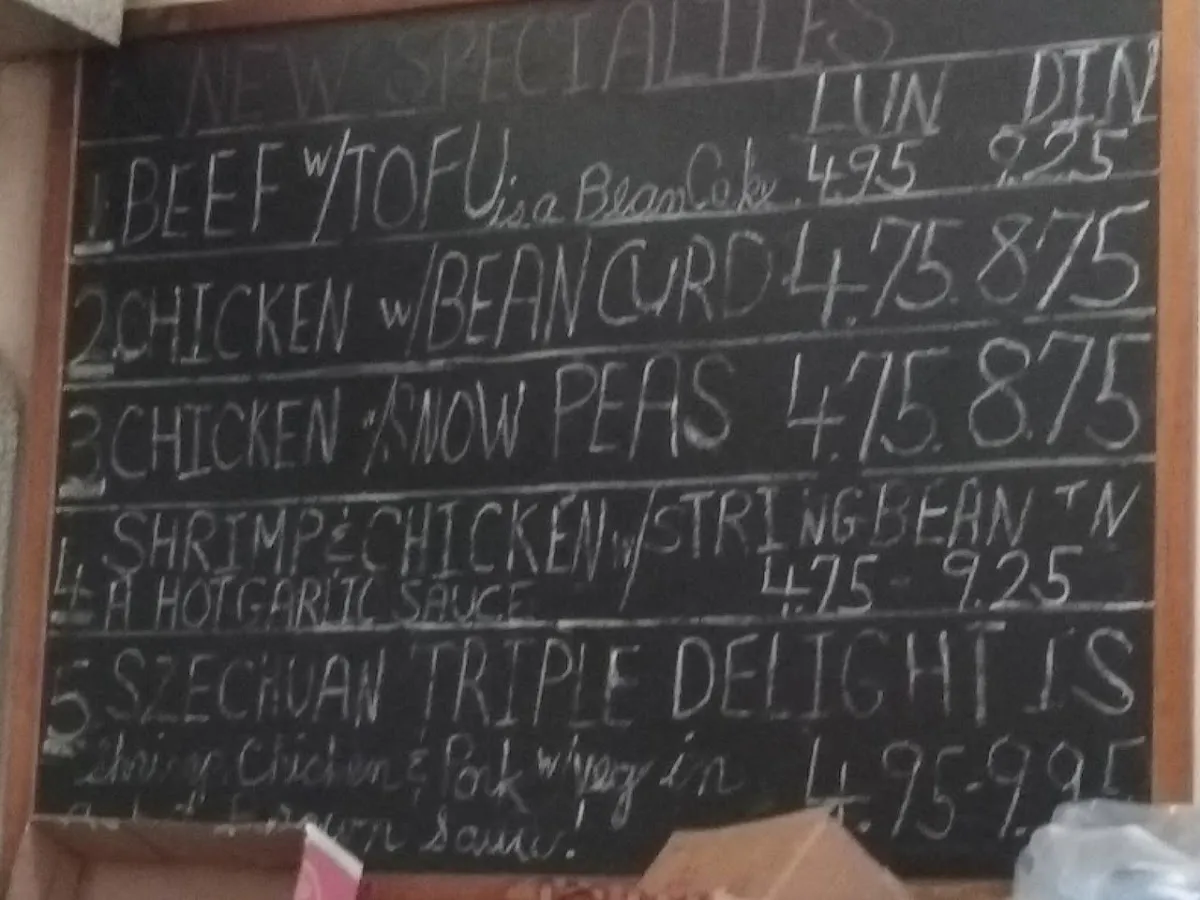 NEW SPECIALTIES
LUN DIN
1 BEEF w/TOFU is a Bean Cake 4.95 9.25
2 CHICKEN w/BEAN CURD 4.75 8.75
3 CHICKEN w/SNOW PEAS 4.75 8.75
4 SHRIMP & CHICKEN w/STRING BEAN IN
A HOT GARLIC SAUCE 4.75 - 9.25
5 SZECHUAN TRIPLE DELIGHT IS
Shrimp, Chicken & Pork w/veg in 4.95-9.95
Brown Sauce!